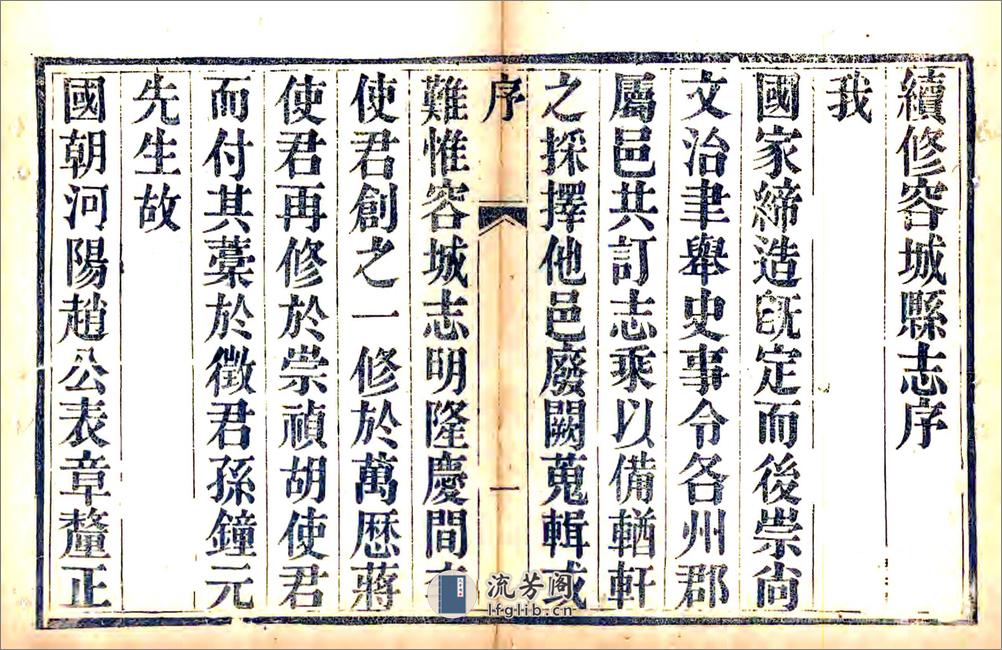 續修容城縣志序
我
國家締造既定而後崇尚
文治聿舉史事令各州郡
屬邑共訂志乘以備輶軒
之採擇他邑廢闕蒐輯或
序 一
難惟容城志明隆慶間
使君創之一修於萬歷蔣
使君再修於崇禎胡使君
而付其藁於徵君孫鐘元
先生故
國朝河陽趙公表章釐正
流芳阁
lfglib.cn